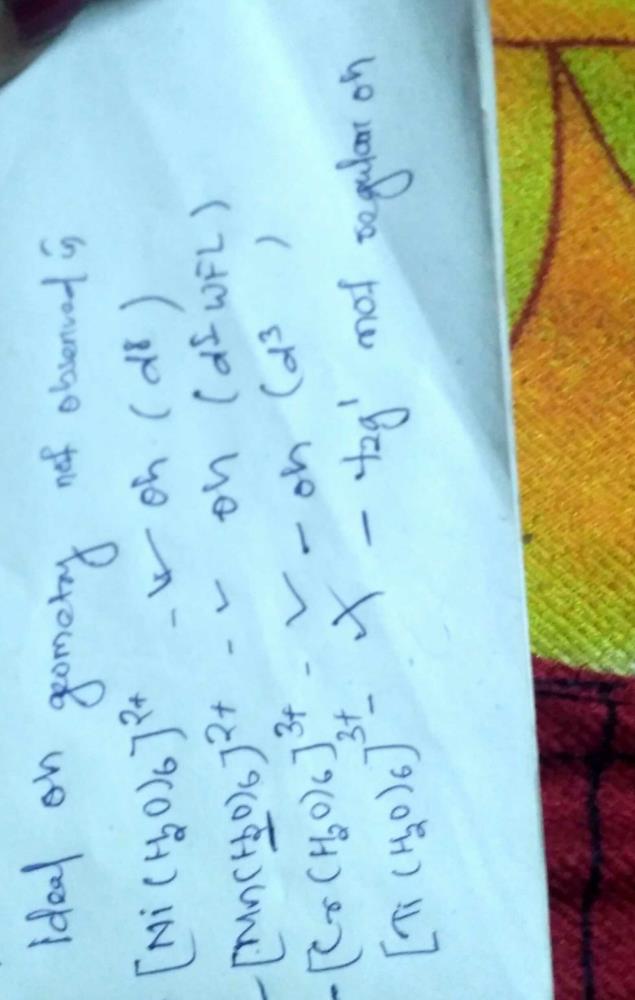 Ideal oh geometry not observed is
[Ni(H2O)6]2+ - ✓ oh (d8)
[Mn(H2O)6]2+ - ✓ oh (d5 WFL)
[Cr(H2O)6]3+ - ✓ - oh (d3)
[Ti(H2O)6]3+ - X - t2g1 not regular oh